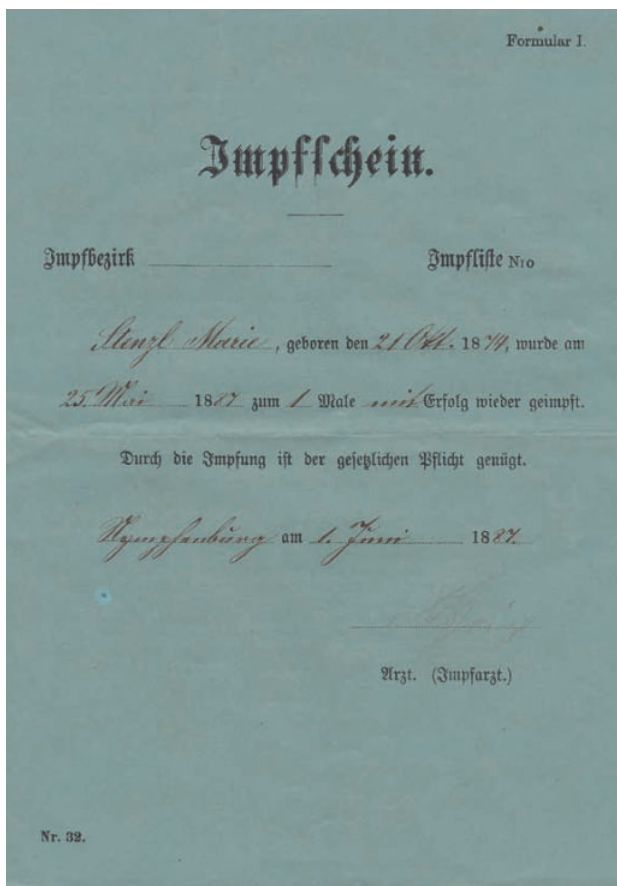 Formular I.
Impfschein.
Impfbezirk Impfliste Nro
Stenzl Marie, geboren den 21 Okt. 1874, wurde am
25. Mai 1887 zum 1 Male mit Erfolg wieder geimpft.
Durch die Impfung ist der gesetzlichen Pflicht genügt.
Nymphenburg am 1. Juni 1887.
Arzt. (Impfarzt.)
Nr. 32.